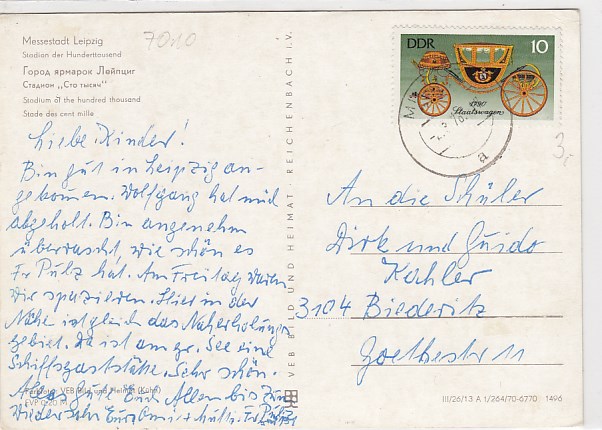 Messestadt Leipzig
Stadion der Hunderttousend
Город ярмарок Лейпциг
Стадион „Сто тысяч"
Stadium of the hundred thousand
Stade des cent mille
7010
Liebe Kinder!
Bin gut in Leipzig an-
gekommen. Wolfgang hat mich
abgeholt. Bin angenehm
überrascht, wie schön es
Fr Pulz hat. Am Freitag waren
wir spazieren. Hier in der
Nähe ist gleich das Naherholungs-
gebiet. Da ist am gr. See eine
Schiffsgaststätte. Sehr schön.
Alles Gute Euch Allen bis zum
Wiedersehn Eure
Farbfoto: VEB Bild und Heimat (Kühn)
EVP 0,20 M
VEB BILD UND HEIMAT · REICHENBACH I. V.
DDR
10
1790
Staatswagen
a
3,
An die Schüler
Dirk und Guido
Kahler
3104 Biederitz
Goethestr 11
III/26/13 A 1/264/70-6770 1496